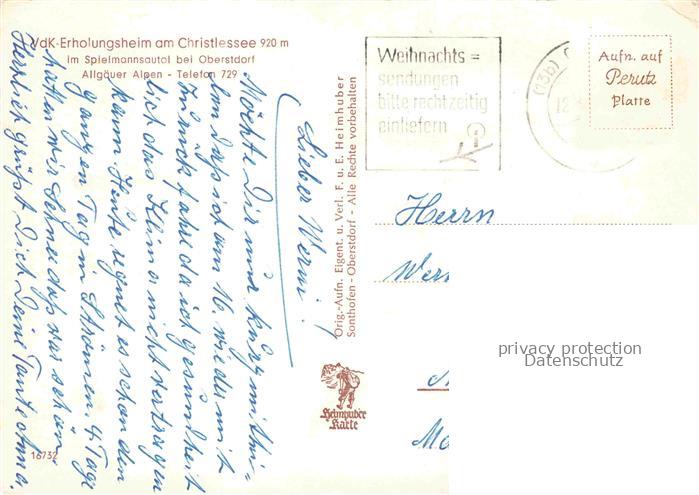 VdK-Erholungsheim am Christlessee 920 m
im Spielmannsautal bei Oberstdorf
Allgäuer Alpen - Telefon 729
Lieber Werni!
Möchte Dir nur kurz mittei-
len daß ich am 16. wieder mit
zurück fahre da ich gesundheit
lich das Klima nicht vertragen
kann. Heute regnet es schon den
ganzen Tag in Strömen. 4 Tage
hatten wir Schnee das war schön.
Herzlich grüßt Dich Deine Tante Anna.
16732
Orig.-Aufn. Eigent. u. Verl. F. u. E. Heimhuber
Sonthofen - Oberstdorf - Alle Rechte vorbehalten
Heimhuber
Karte
Weihnachts=
sendungen
bitte rechtzeitig
einliefern
(13b)
12
Aufn. auf
Perutz
Platte
Herrn
Wer
privacy protection
Datenschutz